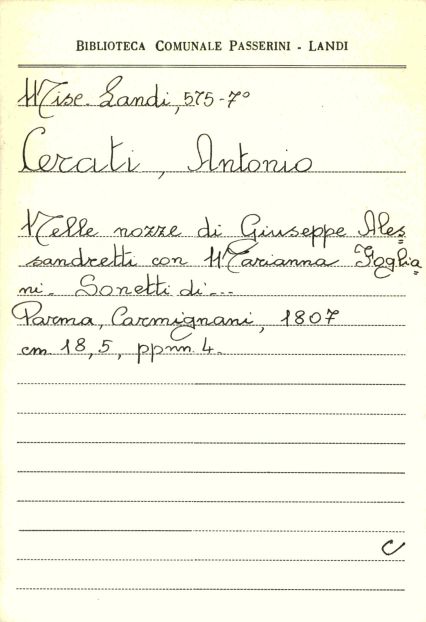 BIBLIOTECA COMUNALE PASSERINI - LANDI
Misc. Landi, 575-7º
Cerati, Antonio
Nelle nozze di Giuseppe Ales=
sandretti con Marianna Foglia=
ni. Sonetti di...
Parma, Carmignani, 1807
cm 18,5, ppnn 4.
C